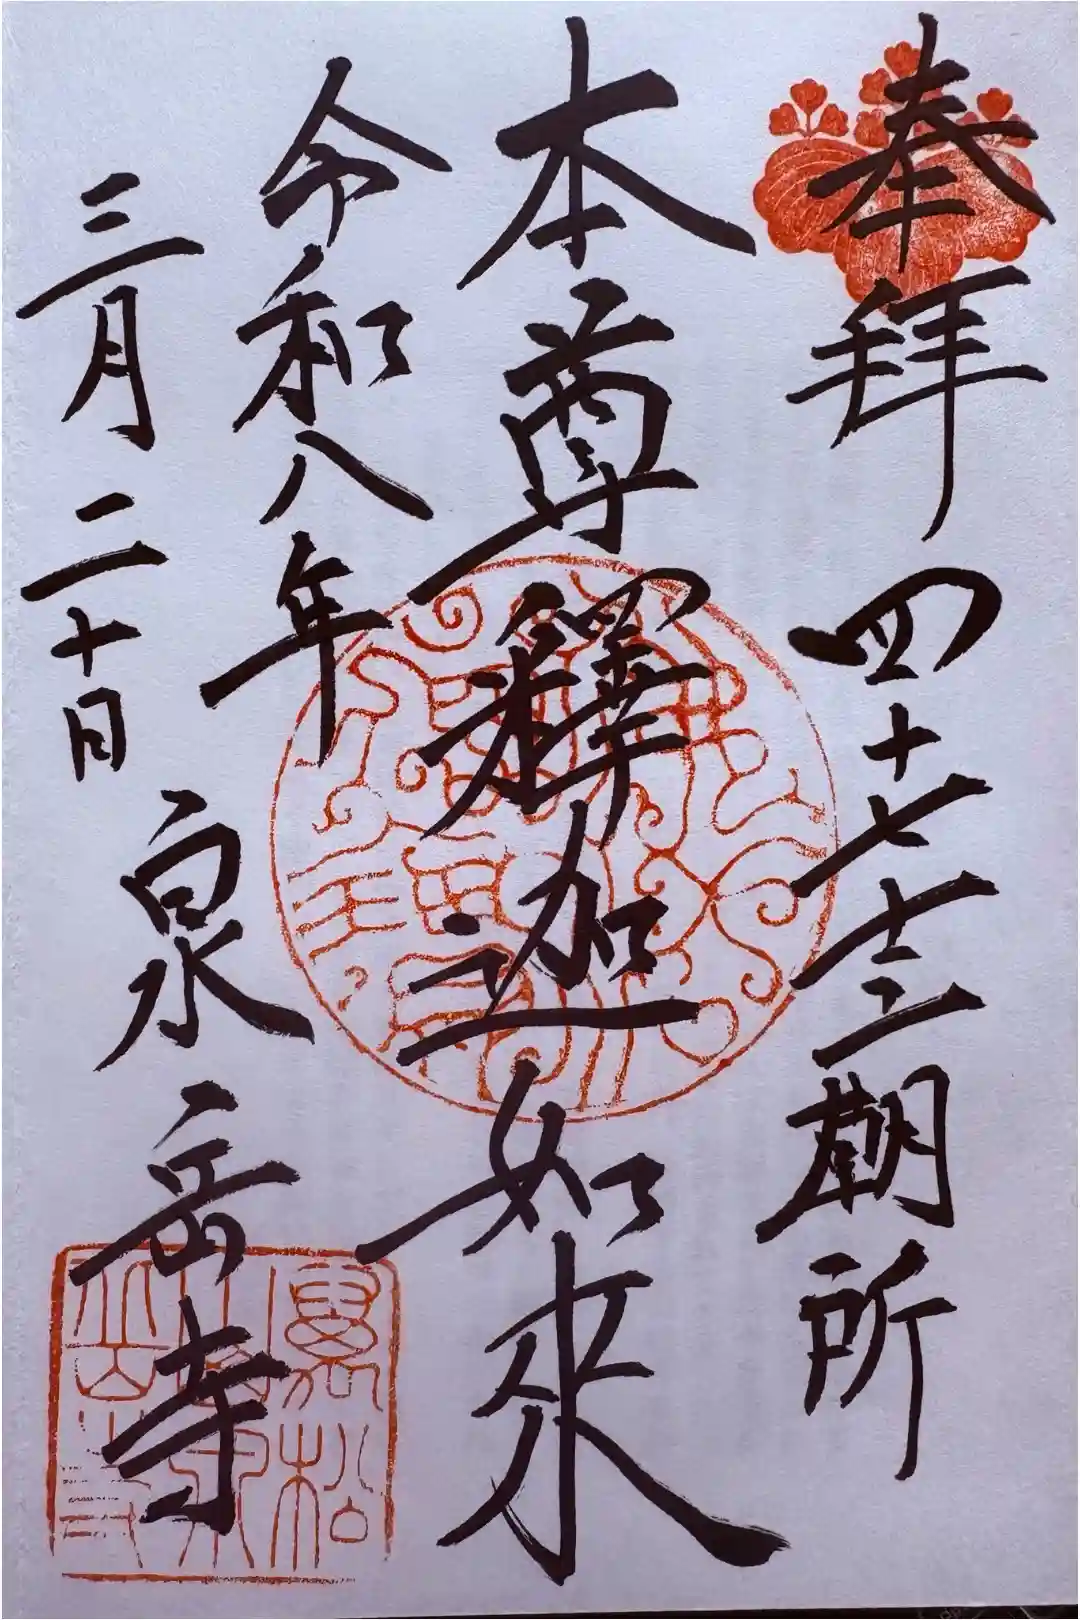 奉拝 四十七士廟所
本尊釋迦如來
令和八年
三月二十日
泉岳寺